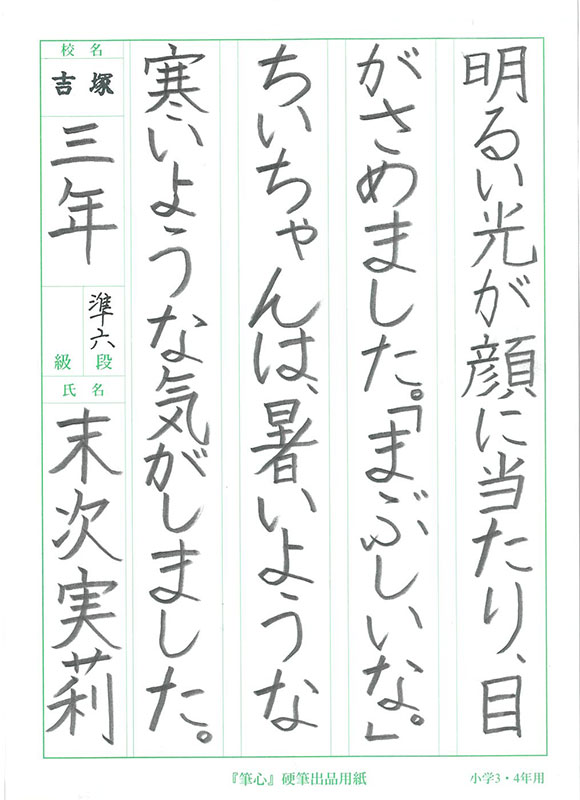 明るい光が顔に当たり、目
がさめました。「まぶしいな。」
ちいちゃんは、暑いような
寒いような気がしました。
校名
吉塚
三年
準六
段
級
氏名
末次実莉
『筆心』硬筆出品用紙
小学3・4年用